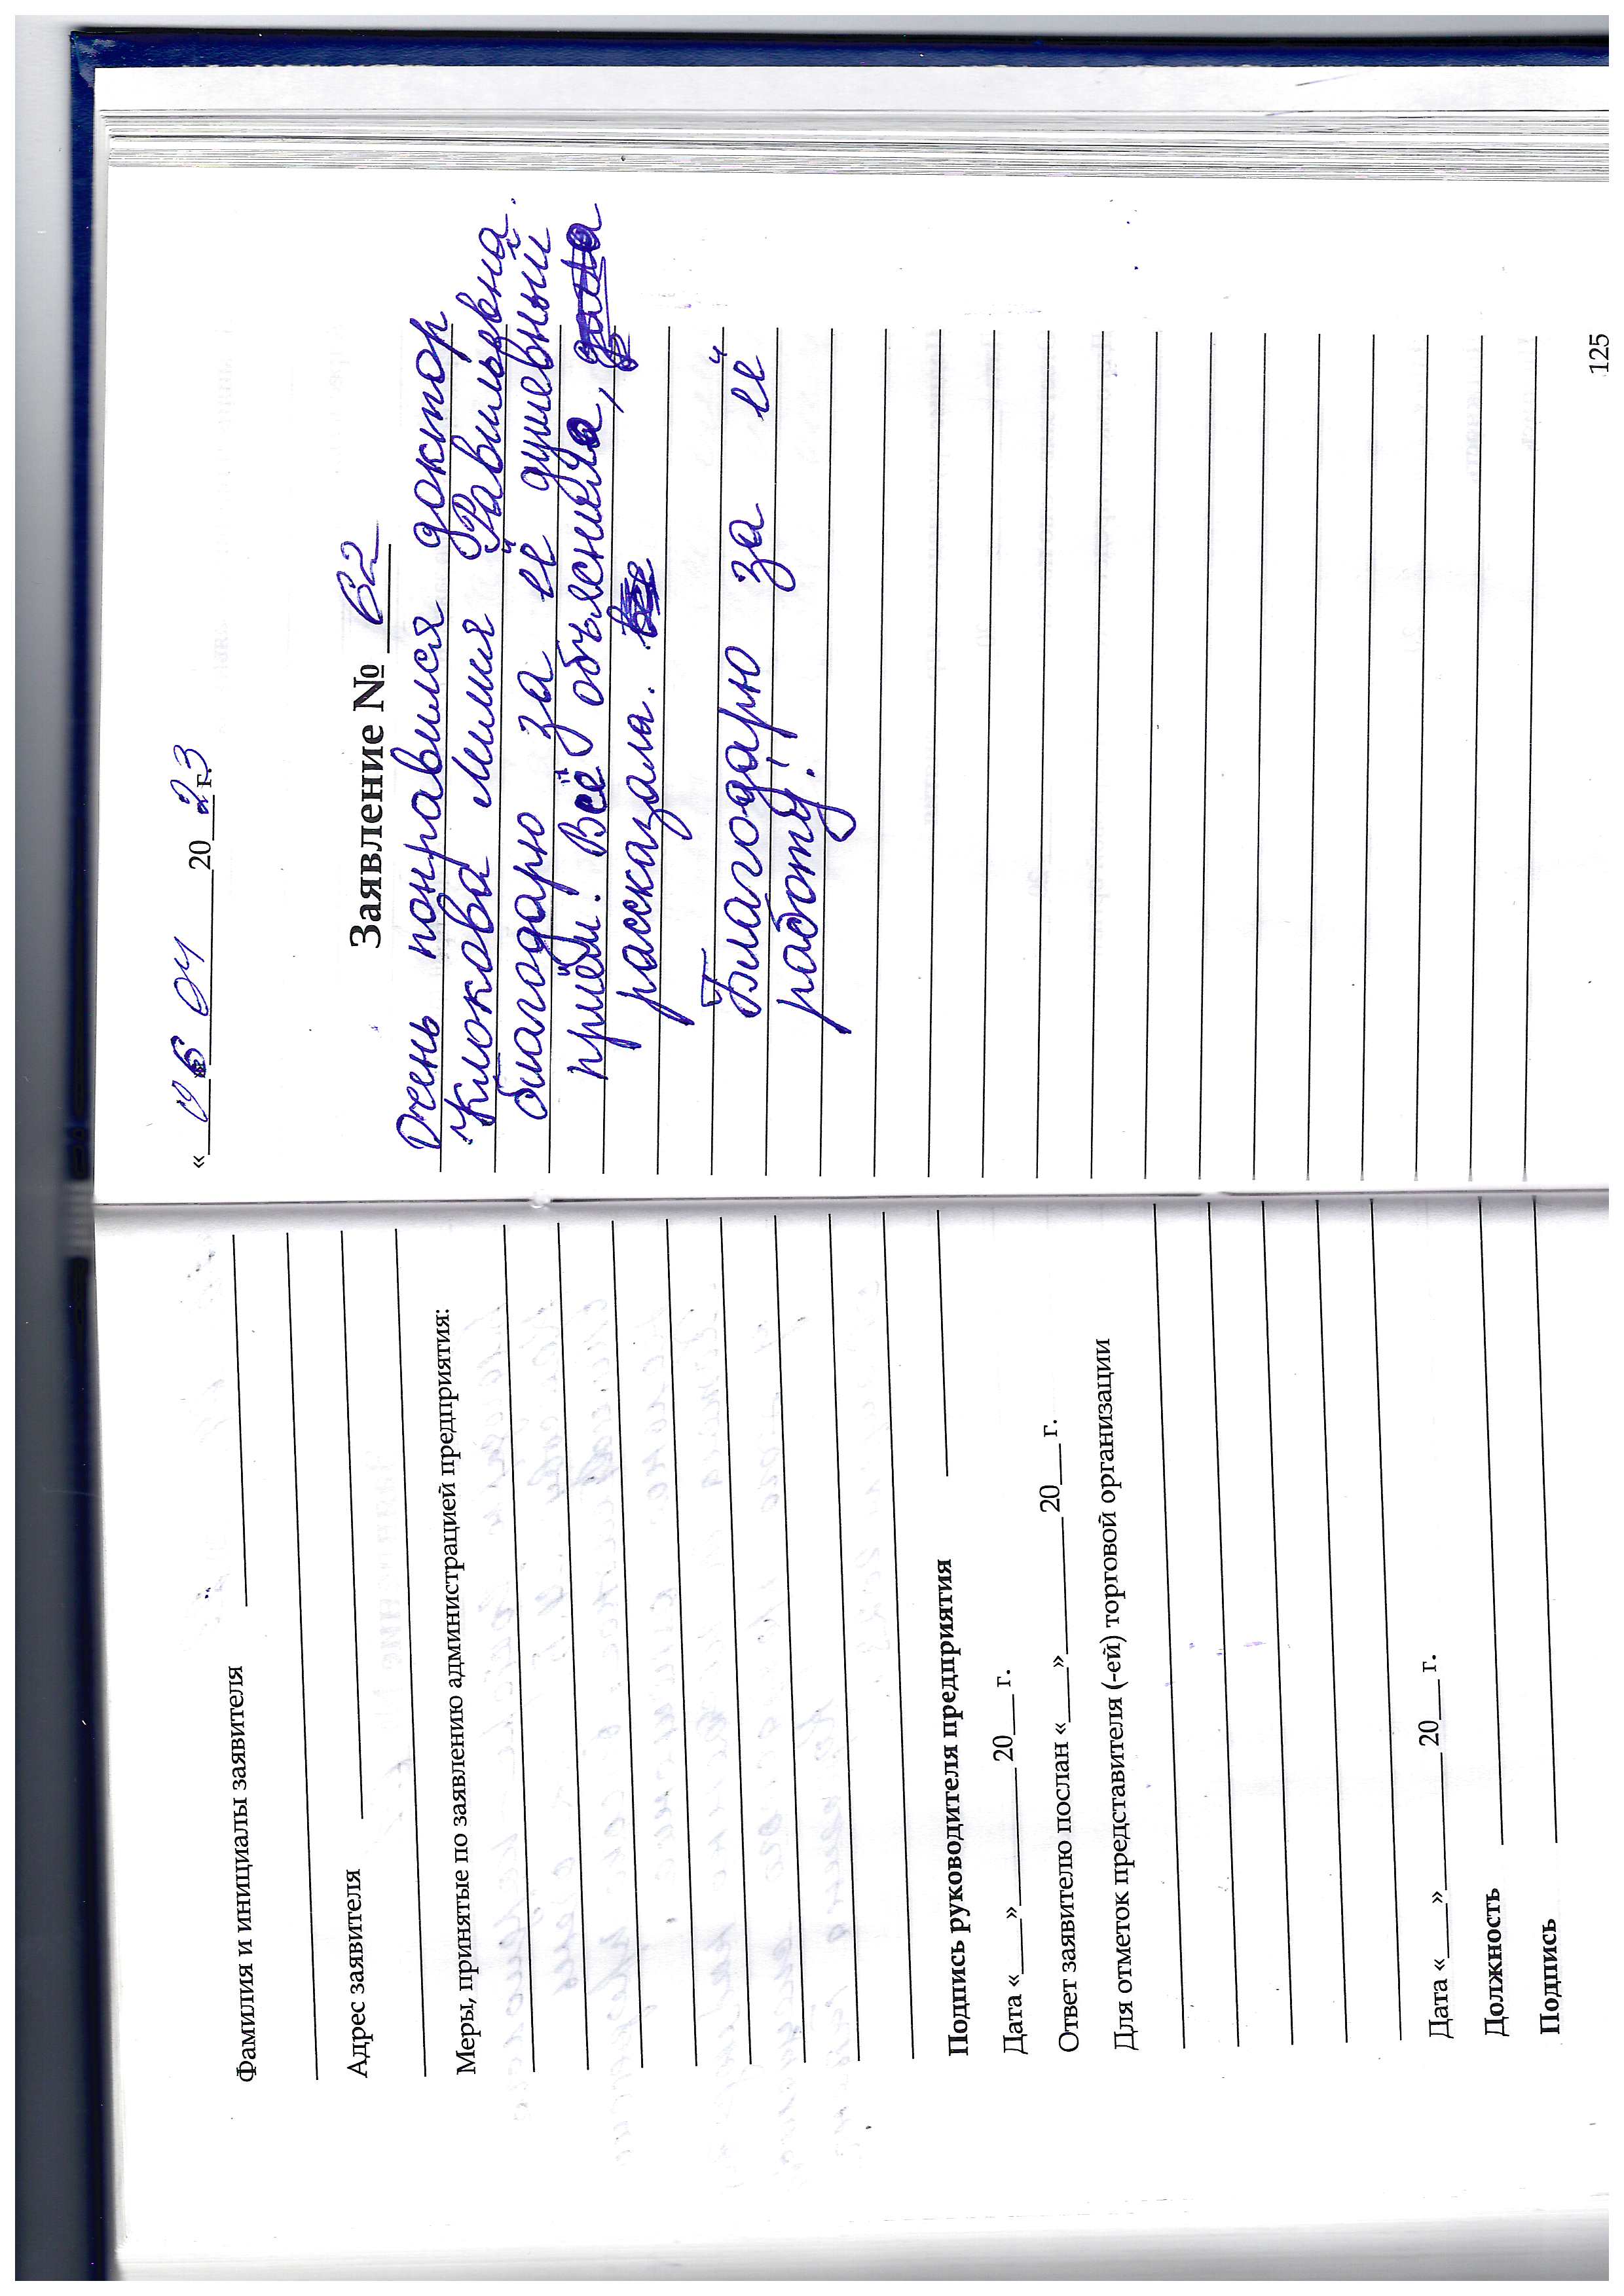 Фамилия и инициалы заявителя
Адрес заявителя
Меры, принятые по заявлению администрацией предприятия:
Подпись руководителя предприятия
Дата «___»________20___г.
Ответ заявителю послан «___»________20___г.
Для отметок представителя (-ей) торговой организации
Дата «___»________20___г.
Должность
Подпись
«06 04 2023 г.
Заявление № 62
Очень понравился доктор
Клокова Лилия Равильевна.
благодарю за её душевный
приём! Всё объяснила,
рассказала.
Благодарю за её
работу!!
125